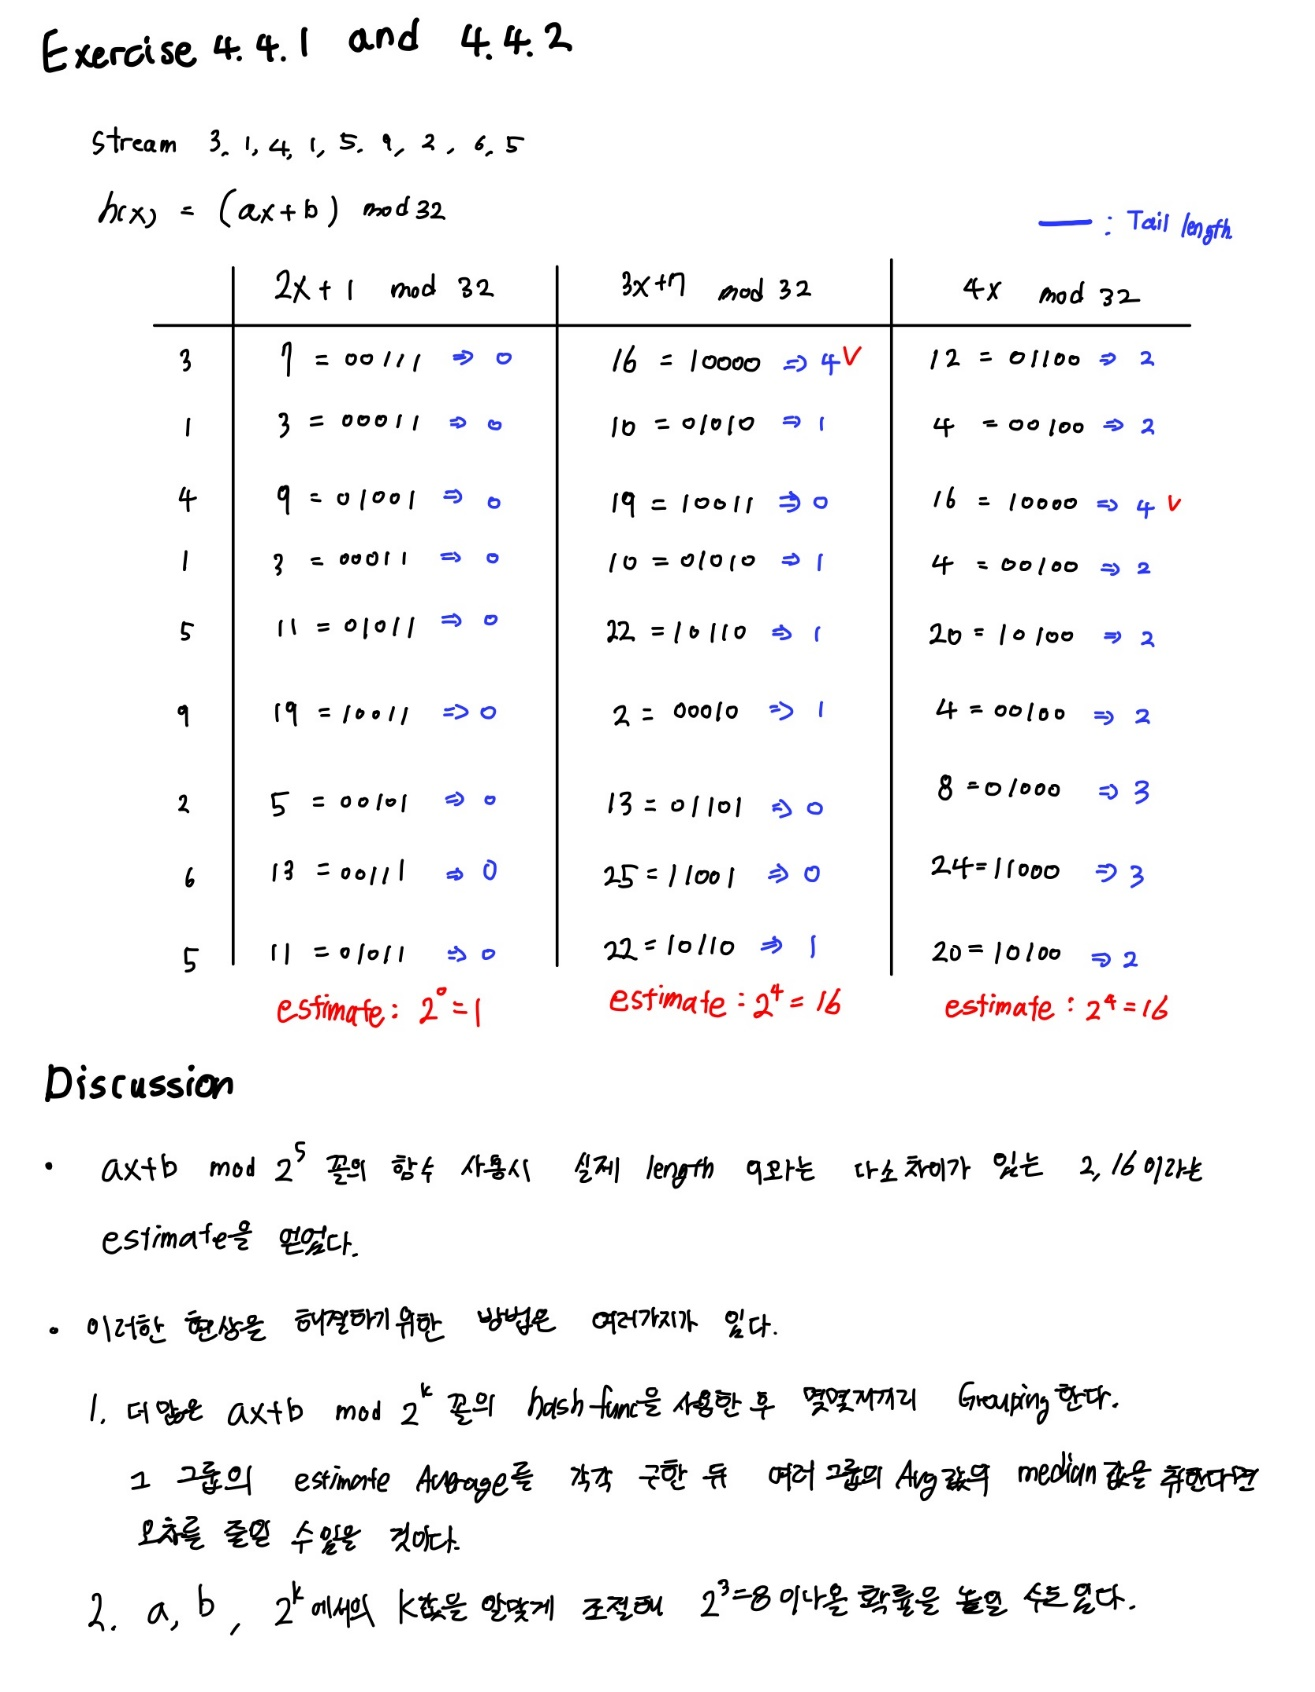 Exercise 4.4.1 and 4.4.2
stream 3, 1, 4, 1, 5, 9, 2, 6, 5
h(x) = (ax+b) mod 32
— : Tail length
2x+1 mod 32 3x+7 mod 32 4x mod 32
3 7 = 00111 ⇒ 0 16 = 10000 ⇒ 4 V 12 = 01100 ⇒ 2
1 3 = 00011 ⇒ 0 10 = 01010 ⇒ 1 4 = 00100 ⇒ 2
4 9 = 01001 ⇒ 0 19 = 10011 ⇒ 0 16 = 10000 ⇒ 4 V
1 3 = 00011 ⇒ 0 10 = 01010 ⇒ 1 4 = 00100 ⇒ 2
5 11 = 01011 ⇒ 0 22 = 10110 ⇒ 1 20 = 10100 ⇒ 2
9 19 = 10011 ⇒ 0 2 = 00010 ⇒ 1 4 = 00100 ⇒ 2
2 5 = 00101 ⇒ 0 13 = 01101 ⇒ 0 8 = 01000 ⇒ 3
6 13 = 00111 ⇒ 0 25 = 11001 ⇒ 0 24 = 11000 ⇒ 3
5 11 = 01011 ⇒ 0 22 = 10110 ⇒ 1 20 = 10100 ⇒ 2
estimate: 2⁰ = 1 estimate : 2⁴ = 16 estimate : 2⁴ = 16
Discussion
• ax+b mod 2⁵ 꼴의 함수 사용시 실제 length 9와는 다소 차이가 있는 2, 16 이라는
estimate을 얻었다.
• 이러한 현상을 해결하기 위한 방법은 여러가지가 있다.
1. 더 많은 ax+b mod 2ᵏ 꼴의 hash func을 사용한 후 몇몇끼리 Grouping 한다.
그 그룹의 estimate Average를 각각 구한 뒤 여러 그룹의 Avg 값의 median 값을 취한다면
오차를 줄일 수 있을 것이다.
2. a, b, 2ᵏ 에서의 k값을 알맞게 조절해 2³=8 이 나올 확률을 높일 수도 있다.